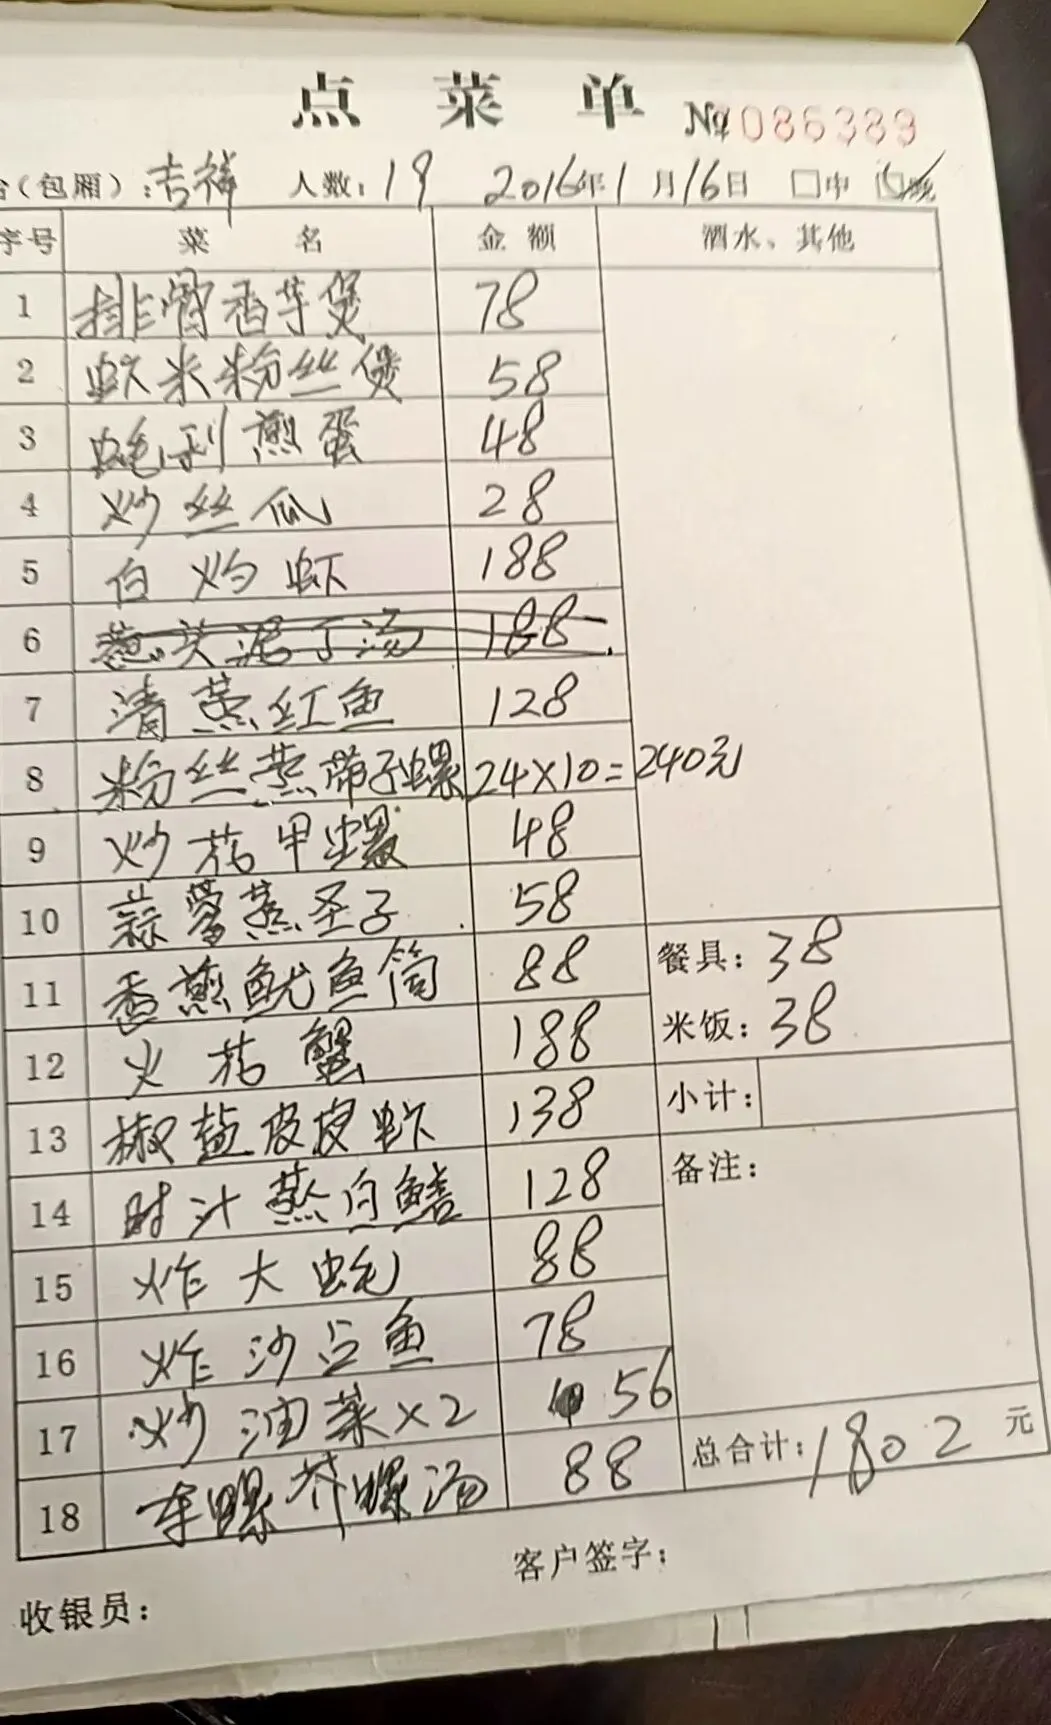 点菜单 № 1086389
台(包厢):吉祥 人数:19 2016年1月16日 □中 ☑晚
序号 菜名 金额 酒水、其他
1 排骨香芋煲 78
2 虾米粉丝煲 58
3 蚝利煎蛋 48
4 炒丝瓜 28
5 白灼虾 188
6 葱头泥丁汤 188
7 清蒸红鱼 128
8 粉丝蒸带子螺 24×10=240元
9 炒花甲螺 48
10 蒜蓉蒸圣子 58
11 香煎鱿鱼筒 88
餐具:38
12 火花蟹 188
米饭:38
13 椒盐皮皮虾 138
小计:
14 时汁蒸白鳝 128
备注:
15 炸大蚝 88
16 炸沙占鱼 78
17 炒油菜×2 56
18 车螺芥螺汤 88
总合计:1802元
客户签字:
收银员: